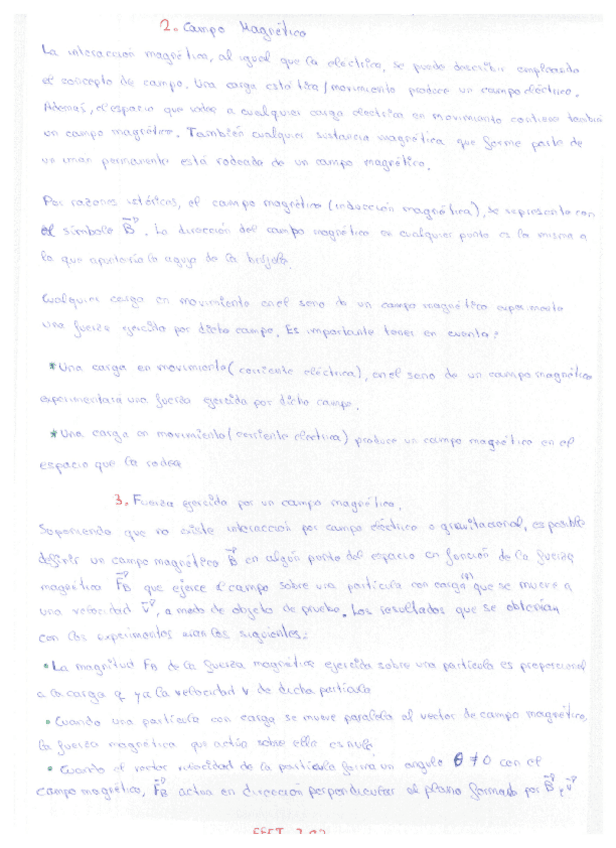 2. Campo Magnético
La interacción magnética, al igual que la eléctrica, se puede describir empleando
el concepto de campo. Una carga estática/movimiento produce un campo eléctrico.
Además, el espacio que rodea a cualquier carga eléctrica en movimiento contiene también
un campo magnético. También cualquier sustancia magnética que forme parte de
un iman permanente está rodeada de un campo magnético.
Por razones istóricas, el campo magnético (inducción magnética), se representa con
el símbolo B⃗. La dirección del campo magnético en cualquier punto es la misma a
la que apuntaría la aguja de la brújula.
Cualquier carga en movimiento en el seno de un campo magnético experimenta
una fuerza ejercida por dicho campo. Es importante tener en cuenta:
*Una carga en movimiento (corriente eléctrica), en el seno de un campo magnético
experimentará una fuerza ejercida por dicho campo.
*Una carga en movimiento (corriente eléctrica) produce un campo magnético en el
espacio que la rodea
3. Fuerza ejercida por un campo magnético.
Suponiendo que no existe interacción por campo eléctrico o gravitacional, es posible
definir un campo magnético B⃗ en algún punto del espacio en función de la fuerza
magnética F⃗B que ejerce el campo sobre una partícula con carga (q) que se mueve a
una velocidad v⃗, a modo de objeto de prueba. Los resultados que se obtenían
con los experimentos eran los siguientes:
• La magnitud FB de la fuerza magnética ejercida sobre una partícula es proporcional
a la carga q y a la velocidad v de dicha partícula
• Cuando una partícula con carga se mueve paralela al vector de campo magnético,
la fuerza magnética que actúa sobre ella es nula.
• Cuando el vector velocidad de la partícula forma un angulo θ ≠ 0 con el
campo magnético, F⃗B actua en dirección perpendicular al plano formado por B⃗ y v⃗